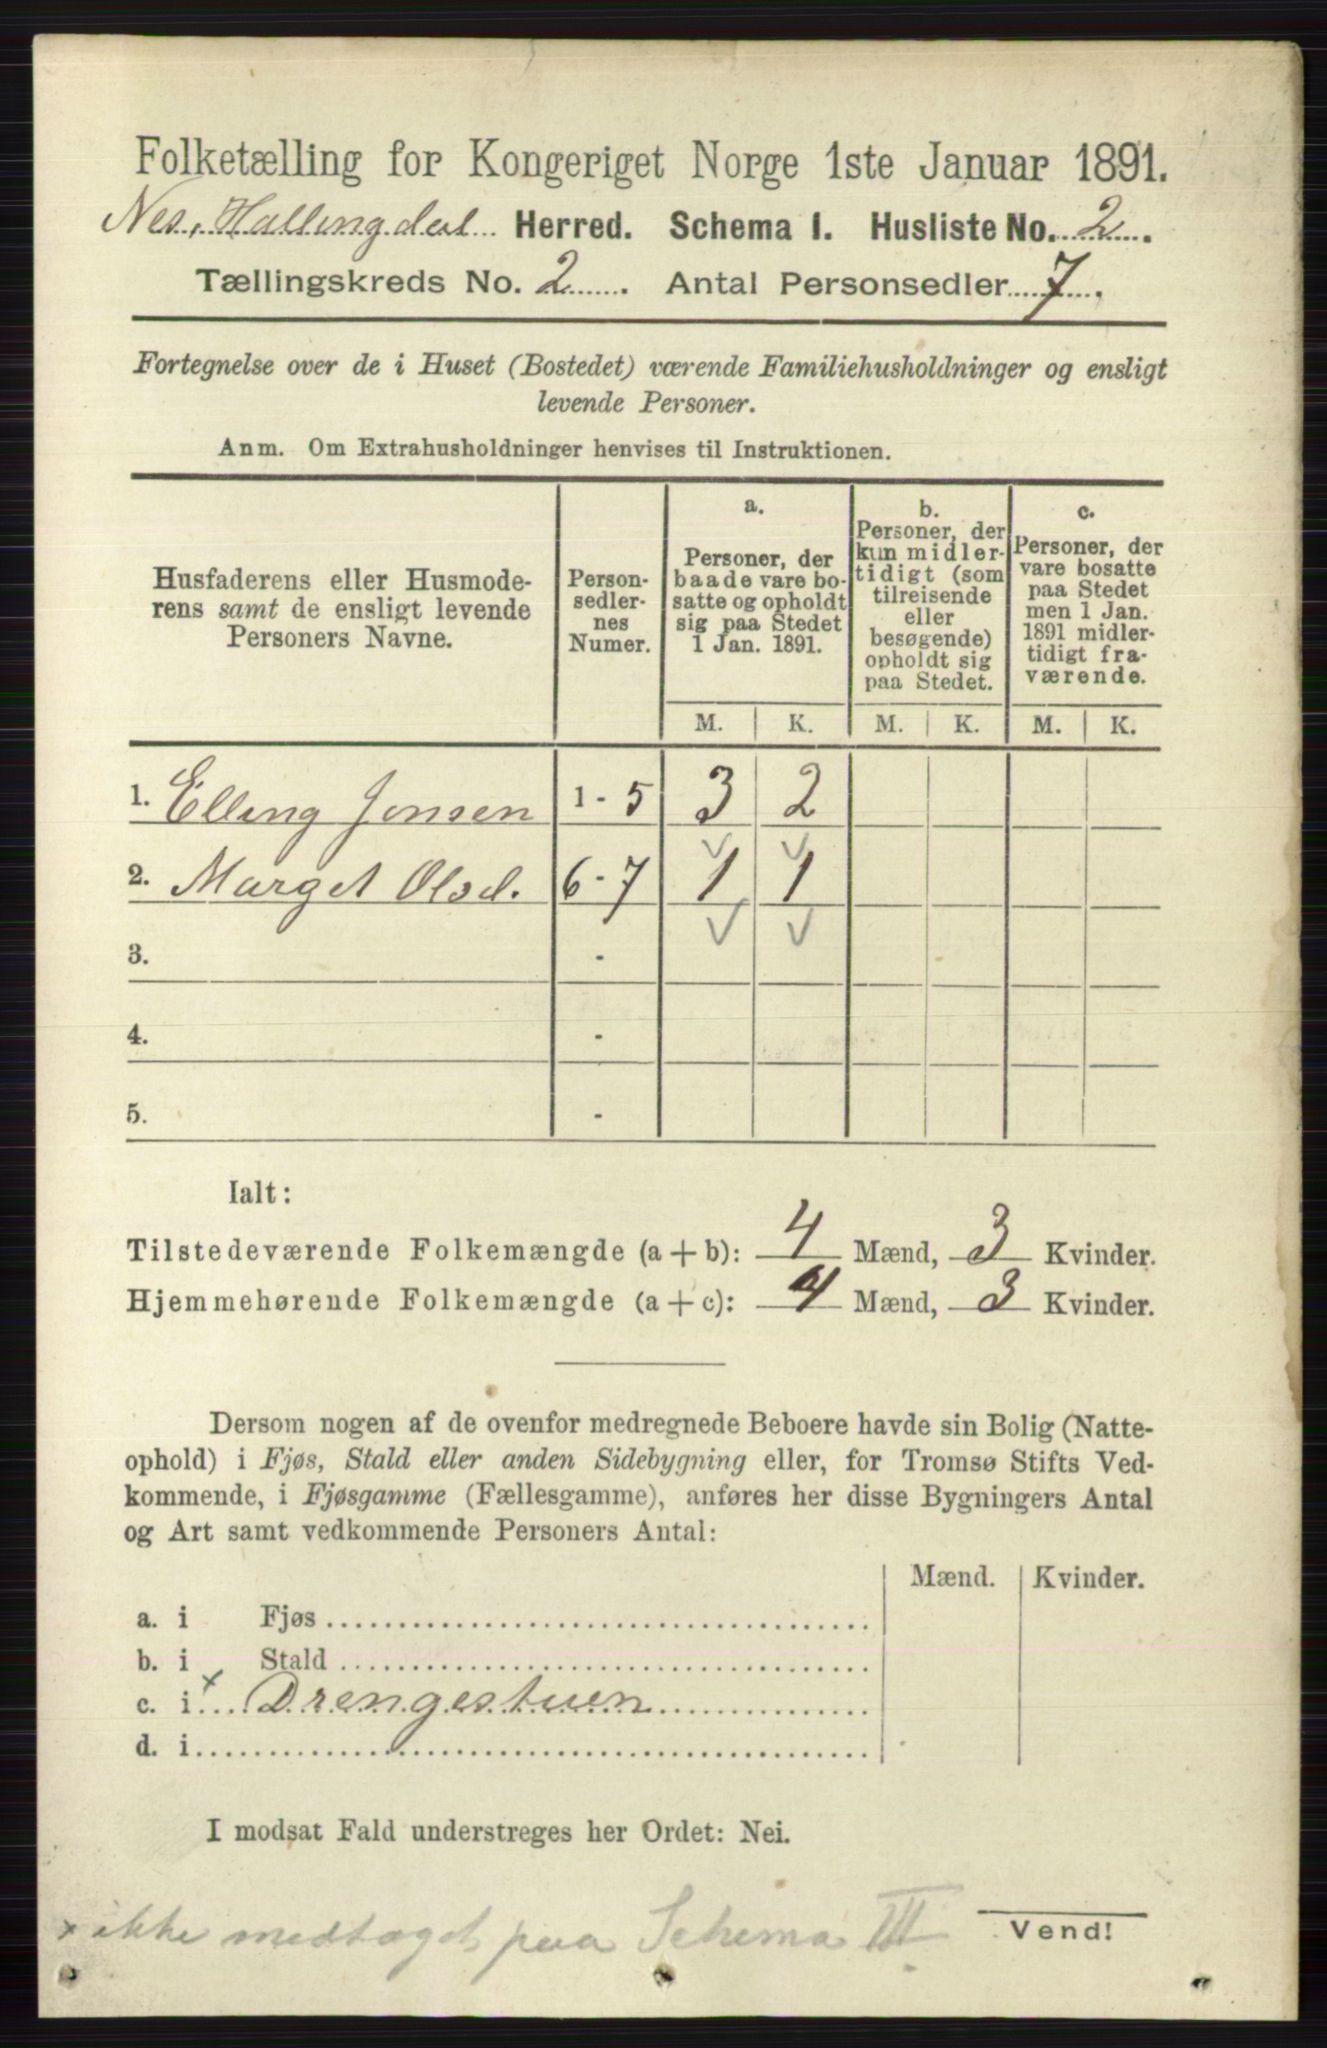 Folketælling for Kongeriget Norge 1ste Januar 1891.
Nes, Hallingdal Herred. Schema I. Husliste No. 2.
Tællingskreds No. 2. Antal Personsedler 7.
Fortegnelse over de i Huset (Bostedet) værende Familiehusholdninger og ensligt
levende Personer.
Anm. Om Extrahusholdninger henvises til Instruktionen.
Husfaderens eller Husmode-
rens samt de ensligt levende
Personers Navne.
Person-
sedler-
nes
Numer.
a.
Personer, der
baade vare bo-
satte og opholdt
sig paa Stedet
1 Jan. 1891.
b.
Personer, der
kun midler-
tidigt (som
tilreisende
eller
besøgende)
opholdt sig
paa Stedet.
c.
Personer, der
vare bosatte
paa Stedet
men 1 Jan.
1891 midler-
tidigt fra-
værende.
M. K. M. K. M. K.
1. Elling Jonsen 1-5 3 2
2. Marget Olsd. 6-7 1 1
3. -
4. -
5. -
Ialt:
Tilstedeværende Folkemængde (a + b): 4 Mænd, 3 Kvinder.
Hjemmehørende Folkemængde (a + c): 4 Mænd, 3 Kvinder.
Dersom nogen af de ovenfor medregnede Beboere havde sin Bolig (Natte-
ophold) i Fjøs, Stald eller anden Sidebygning eller, for Tromsø Stifts Ved-
kommende, i Fjøsgamme (Fællesgamme), anføres her disse Bygningers Antal
og Art samt vedkommende Personers Antal:
Mænd. Kvinder.
a. i Fjøs
b. i Stald
c. i x Drengestuen
d. i
I modsat Fald understreges her Ordet: Nei.
x ikke medtaget paa Schema III
Vend!